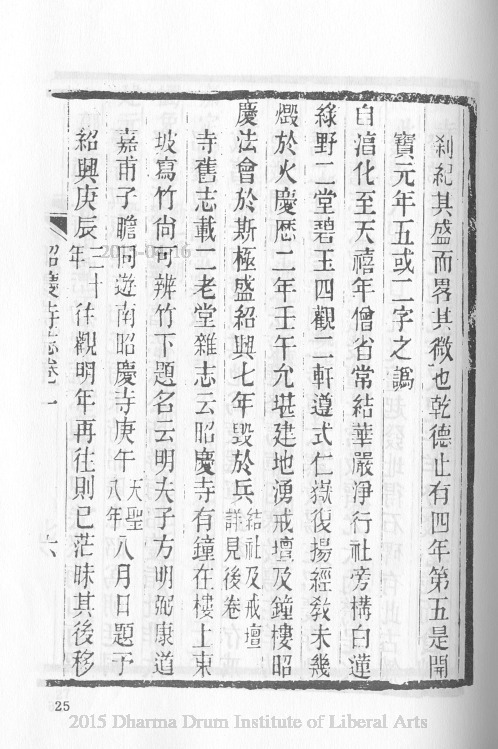 剎紀其盛而畧其微也乾德止有四年第五是開
寶元年五或二字之譌
自淯化至天禧年僧省常結華嚴淨行社旁構白蓮
綠野二堂碧玉四觀二軒遵式仁嶽復揚經敎未幾
燬於火慶歴二年壬午允堪建地湧戒壇及鐘樓昭
慶法會於斯極盛紹興七年毀於兵結社及戒壇詳見後卷
寺舊志載二老堂雜志云昭慶寺有鐘在樓上東
坡寫竹尙可辨竹下題名云明夫子方明弼康道
嘉甫子瞻同遊南昭慶寺庚午天聖八年八月日題予
紹興庚辰三十年往觀明年再往則已茫昧其後移
昭慶寺志卷一
六
2015-04-16
25
2015 Dharma Drum Institute of Liberal Arts